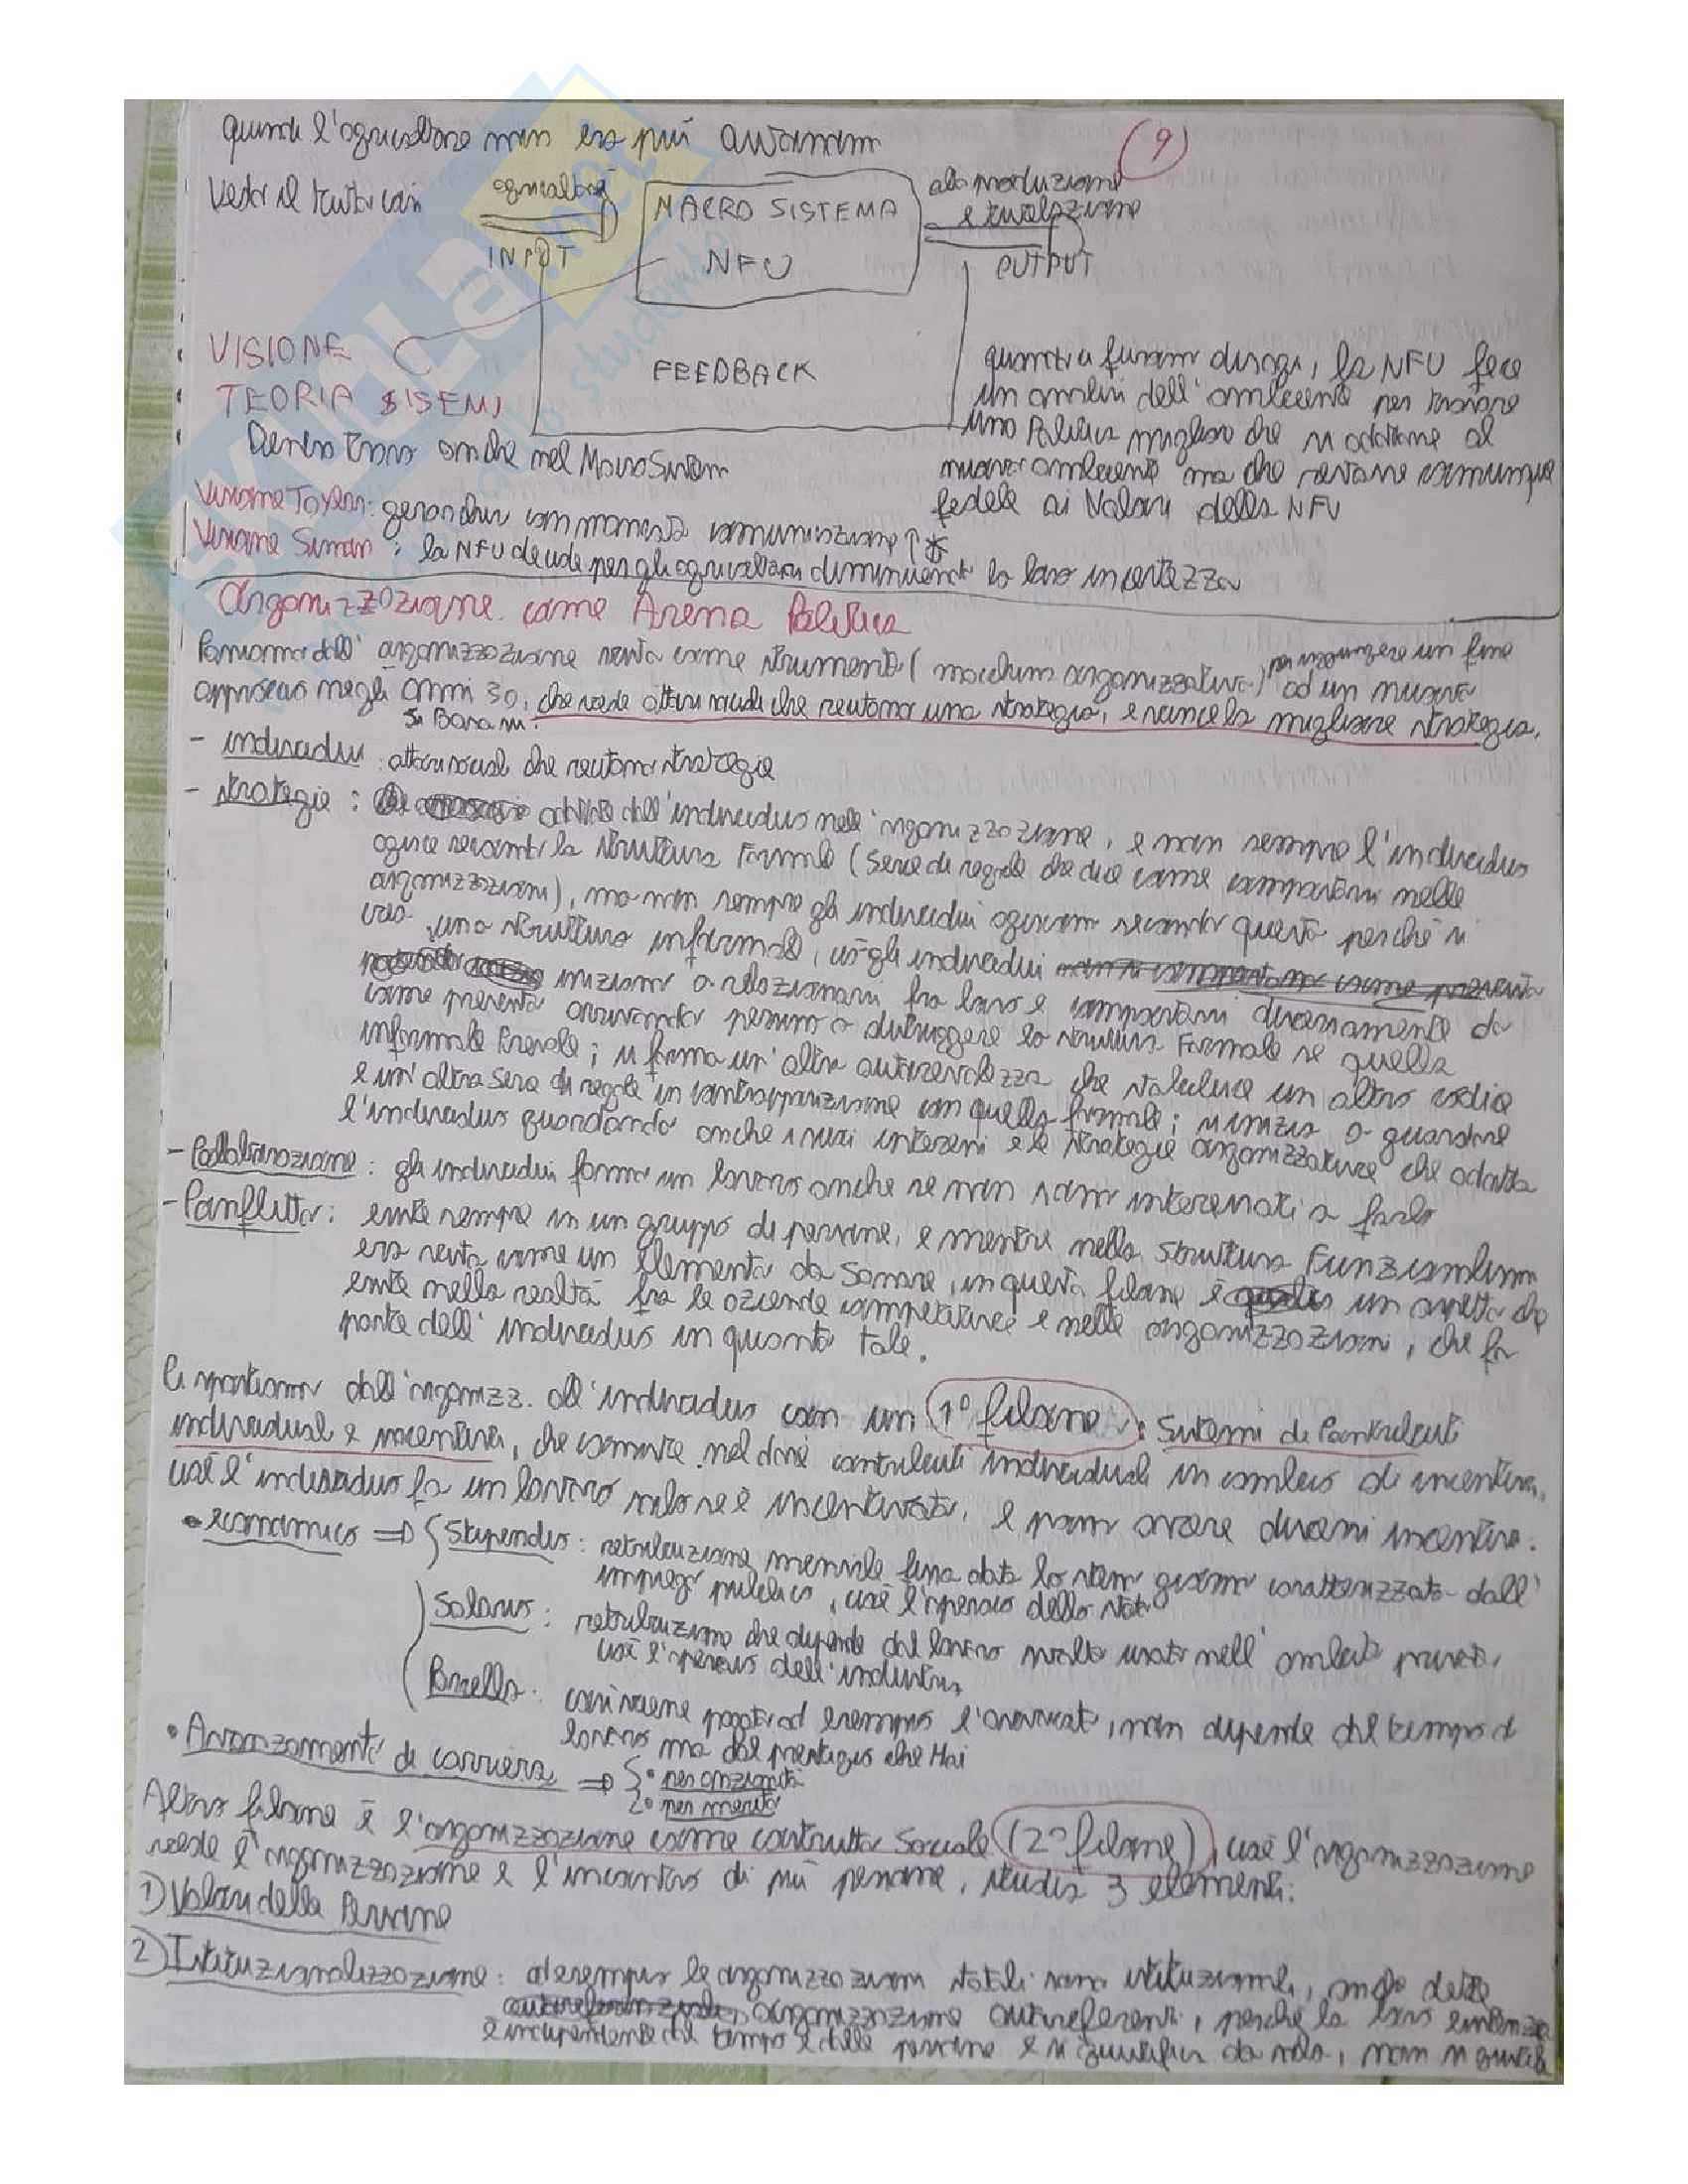 quindi l'agricoltore non era più autonomo
(9)
Vedo il tutto così
agricoltori
INPUT
MACRO SISTEMA
NFU
alla produzione
e rivelazione
OUTPUT
FEEDBACK
VISIONE
TEORIA SISEMI
Dentro trovo anche nel MacroSistem
quando furono disagi, la NFU fece
un analisi dell'ambiente per trovare
una Politica migliore che si adattasse al
nuovo ambiente ma che restasse comunque
fedele ai Valori della NFU
Visione Taylor: gerarchia con momento comunicazione ↑ *
Visione Simon: la NFU decide per gli agricoltori diminuendo la loro incertezza
Organizzazione come Arena Politica
Passiamo dall'organizzazione vista come strumento (macchina organizzativa) per raggiungere un fine ad un nuovo
approccio negli anni 30, che vede attori sociali che recitano una strategia, e vince la migliore strategia.
Si Basa su:
- individui: attori sociali che recitano strategie
- strategie: adottate dall'individuo nell'organizzazione, e non sempre l'individuo
agisce secondo la struttura Formale (Serie di regole che dice come comportarsi nelle
organizzazioni), ma non sempre gli individui agiscono secondo questa perché si
crea una struttura informale, cioè gli individui
iniziano a relazionarsi fra loro e comportarsi diversamente da
come previsto arrivando persino a distruggere la struttura Formale se quella
informale Prevale; si forma un'altra autorevolezza che stabilisce un altro codice
e un'altra serie di regole in contrapposizione con quella formale; si inizia a guardare
l'individuo guardando anche i suoi interessi e le strategie organizzative che adotta
- Collaborazione: gli individui fanno un lavoro anche se non sono interessati a farlo
- Conflitto: esiste sempre in un gruppo di persone, e mentre nella struttura Funzionalismo
era visto come un Elemento da Sanare, in questo filone è un aspetto che
esiste nella realtà fra le aziende competitive e nelle organizzazioni, che fa
parte dell'individuo in quanto tale.
Ci spostiamo dall'organizz. all'individuo con un 1° filone: Sistemi di Contributi
individuali e incentivi, che consiste nel dare contributi individuali in cambio di incentivi,
cioè l'individuo fa un lavoro solo se è incentivato, e possono avere diversi incentivi.
• economico ⇒ { Stipendio: retribuzione mensile fino data lo stesso giorno caratterizzato dall'
impiego pubblico, cioè l'operaio dello stato
Salario: retribuzione che dipende dal lavoro svolto usato nell'ambito privato,
cioè l'operaio dell'industria
Parcella: così viene pagato ad esempio l'avvocato, non dipende dal tempo di
lavoro ma dal prestigio che Hai
• Avanzamento di carriera ⇒ { • per anzianità
• per merito
Altro filone è l'organizzazione come costrutto Sociale (2° filone), cioè l'organizzazione
vede l'organizzazione e l'incontro di più persone, studia 3 elementi:
1) Valori delle Persone
2) Istituzionalizzazione: ad esempio le organizzazioni statali sono istituzionali, anche dette
organizzazione autoreferenti, perché la loro esistenza
è indipendente dal tempo e dalle persone e si giustifica da sola, non si giustifica